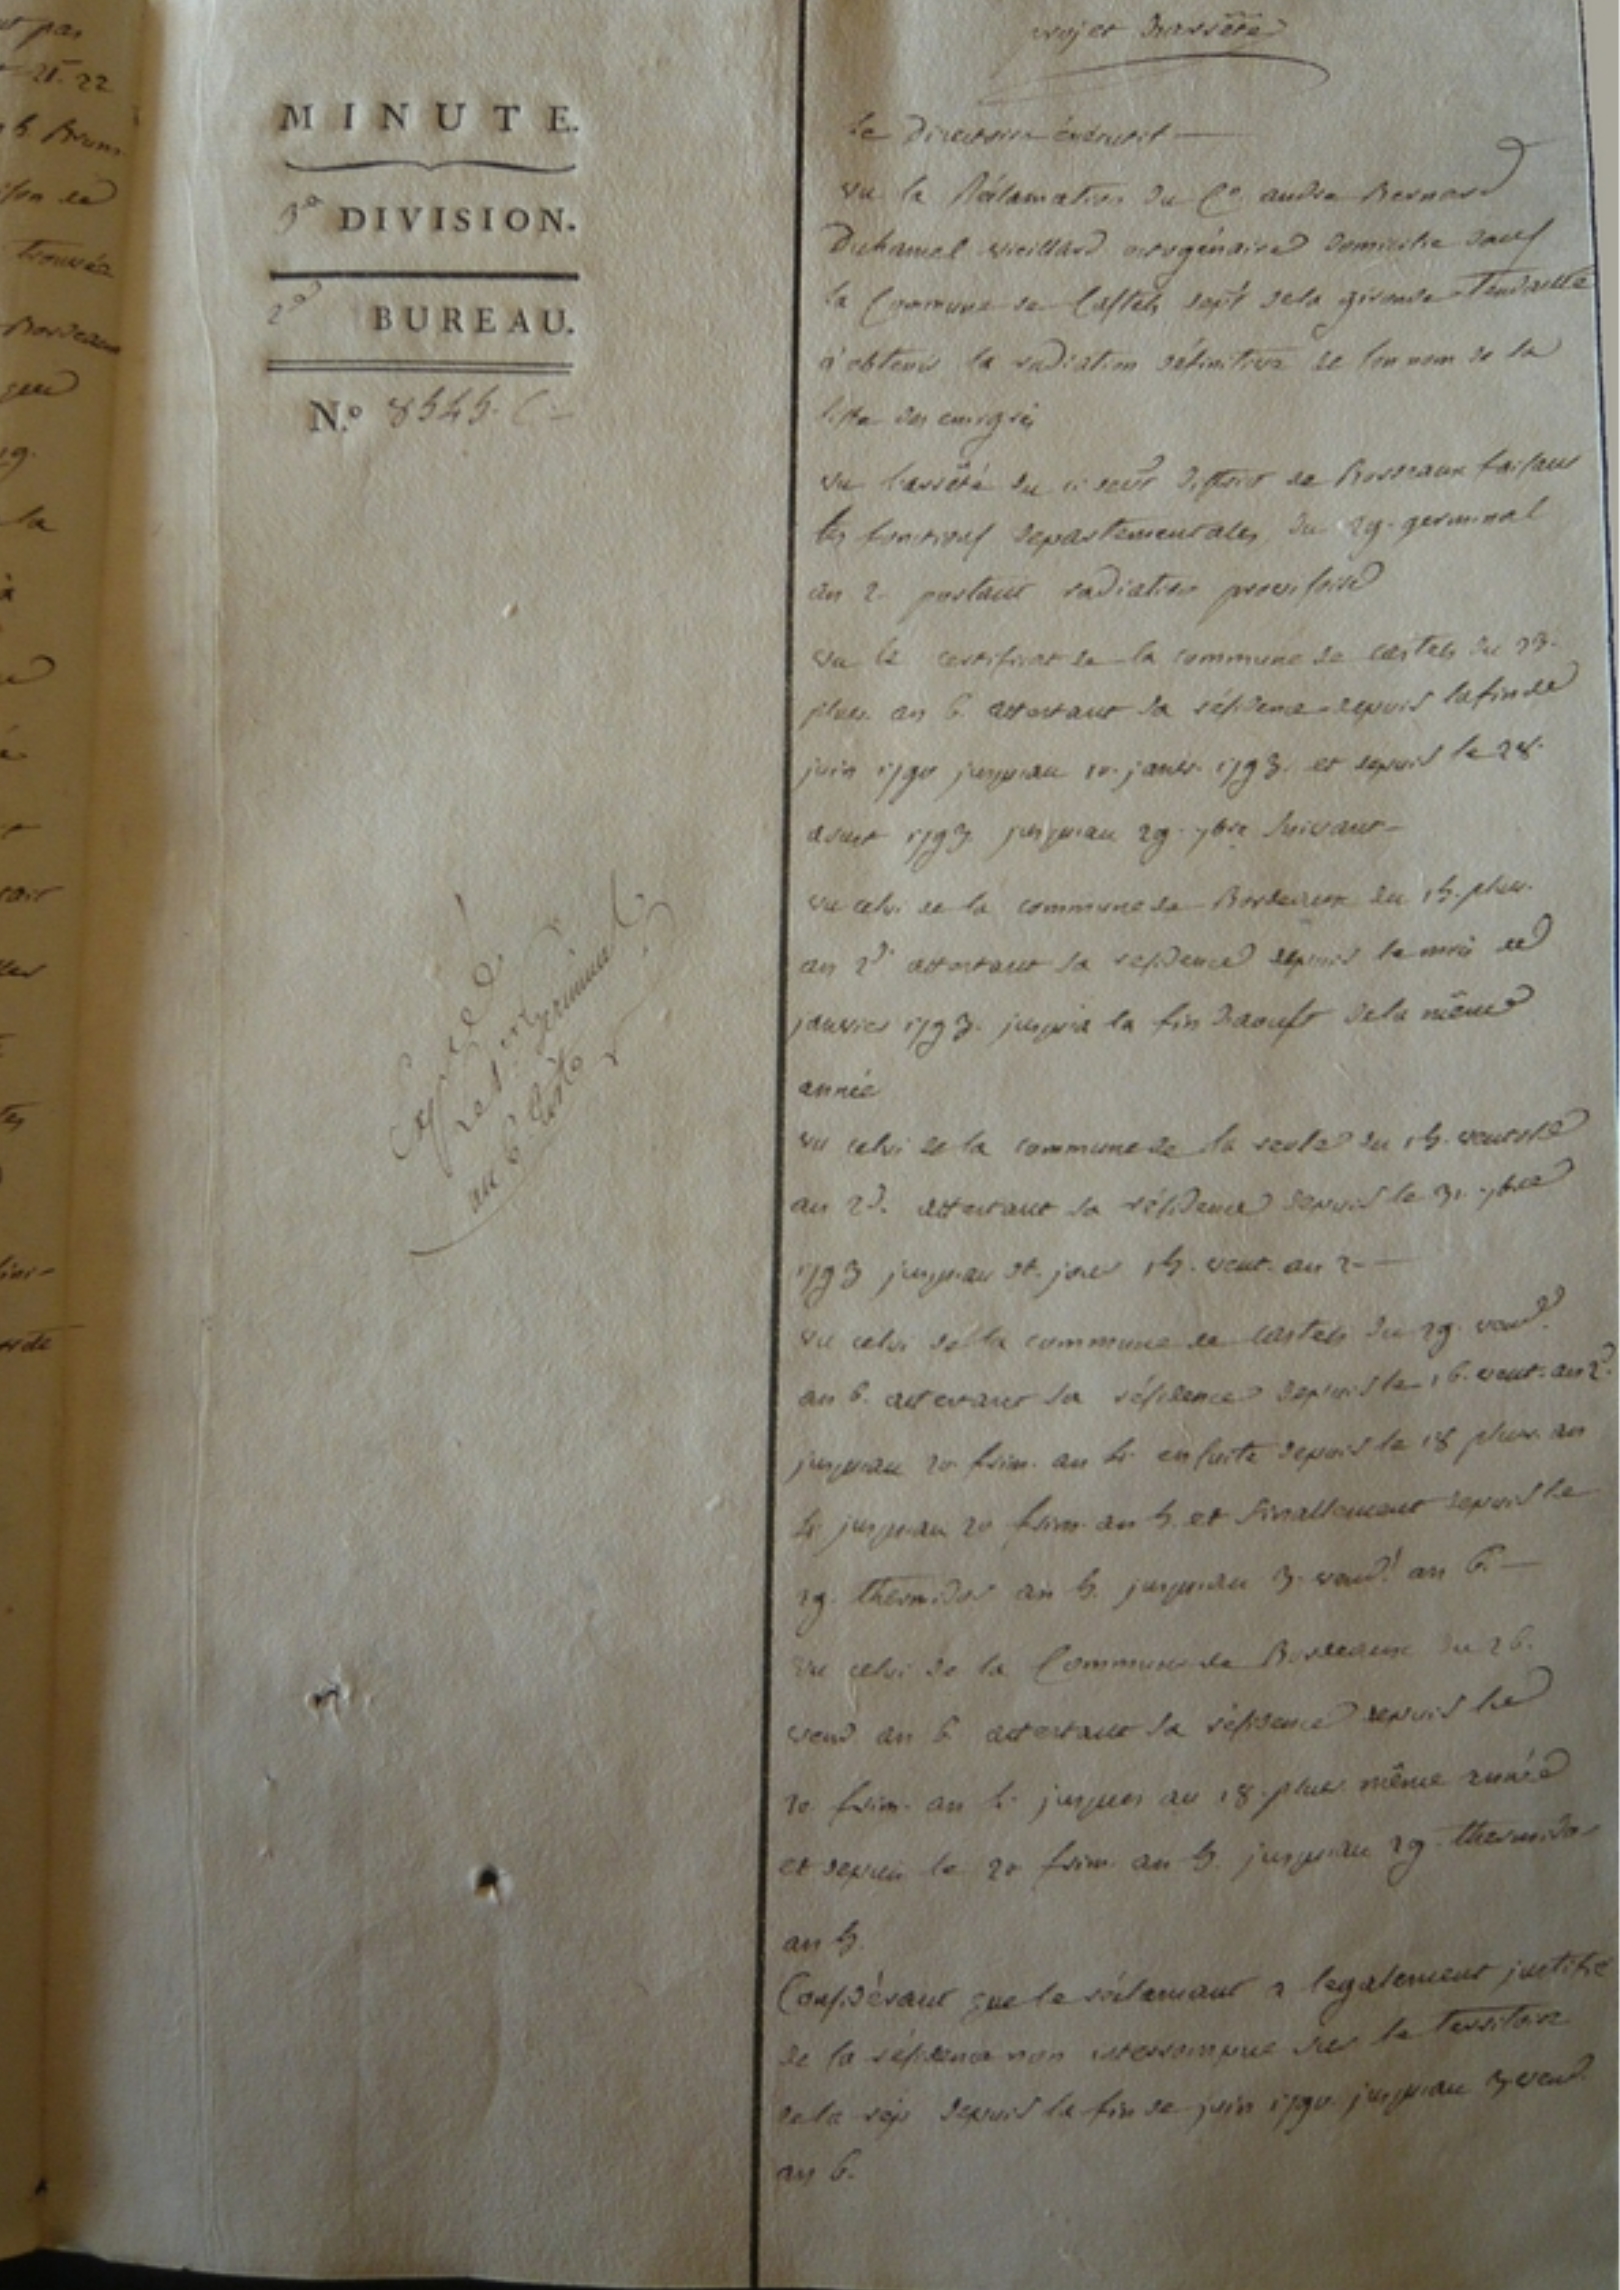 projet d'arrêté
MINUTE.
3e DIVISION.
2e BUREAU.
N.º 8545.
le Directoire éxécutif
vu la Réclamation du Cen. andré Bernard
Duhamel vieillard octogénaire domicilié dans
la Commune de Castets dept. de la gironde tendante
à obtenir la radiation définitive de son nom de la
liste des émigrés
vu l'arrêté du district de Bordeaux faisant
les fonctions départementales, du 29. germinal
an 2. portant radiation provisoire
vu le certificat de la commune de castets du 23.
pluv. an 6. attestant sa résidence depuis la fin de
juin 1790 jusqu'au 10. janv. 1793. et depuis le 28.
aoust 1793. jusqu'au 29. 7bre suivant
vu celui de la commune de Bordeaux du 15. pluv.
an 2d. attestant sa résidence depuis le mois de
janvier 1793. jusqu'à la fin d'aoust de la même
année
vu celui de la commune de la reole du 15. ventose
an 2d. attestant sa résidence depuis le 7bre
1793 jusqu'au dt. jour 15. vent. an 2.
vu celui de la commune de castets du 29. vend.
an 6. attestant sa résidence depuis le 16. vent. an 2d.
jusqu'au 20 frim. an 4. ensuite depuis le 18 pluv. an
4. jusqu'au 20 frim. an 5. et finallement depuis le
29. thermidor an 5. jusqu'au 3. vend. an 6.
vu celui de la Commune de Bordeaux du 26.
vend. an 6 attestant sa résidence depuis le
20. frim. an 4. jusques au 18. pluv. même année
et depuis le 20 frim. an 5. jusqu'au 29. thermidor
an 5.
Considérant que le réclamant a legalement justifié
de sa résidence non interrompue sur le territoire
de la rep. depuis la fin de juin 1790. jusqu'au 3 vend.
an 6.
germinal
an 6.